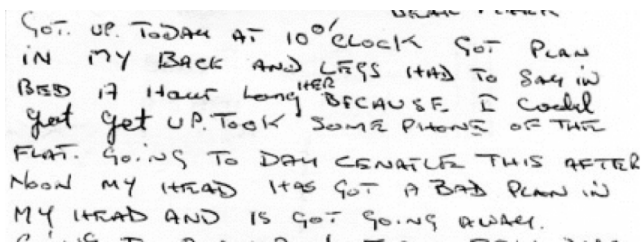 GOT. UP. TODAY AT 10 O'CLOCK GOT PLAN
IN MY BACK AND LEGS HAD TO SAY IN
BED A HOUR LONGHER BECAUSE I could
get UP. TOOK SOME PHONE OF THE
FLAT. GOING TO DAY THIS AFTER
NOON MY HEAD HAS GOT A BAD PLAN IN
MY HEAD AND IS GOT GOING AWAY.